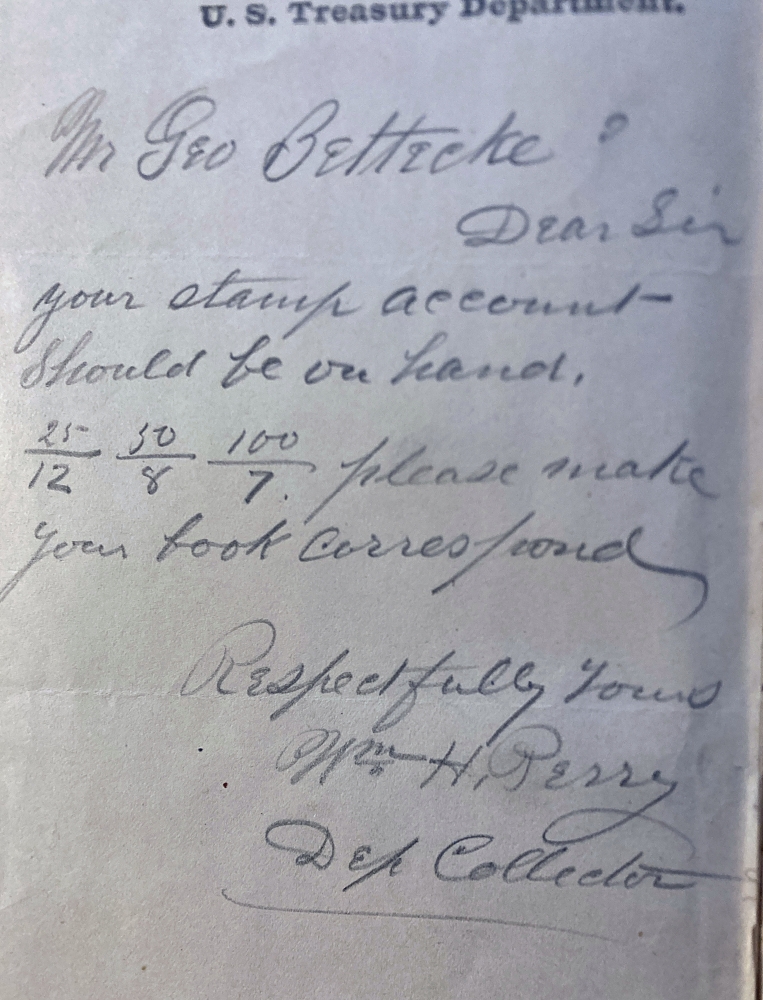 U. S. Treasury Department.
Mr Geo Bettecke ?
Dear Sir
your stamp account
Should be on hand.
25/12 50/8 100/7. please make
your book correspond
Respectfully Yours
Wm H. Perry
Dep Collector